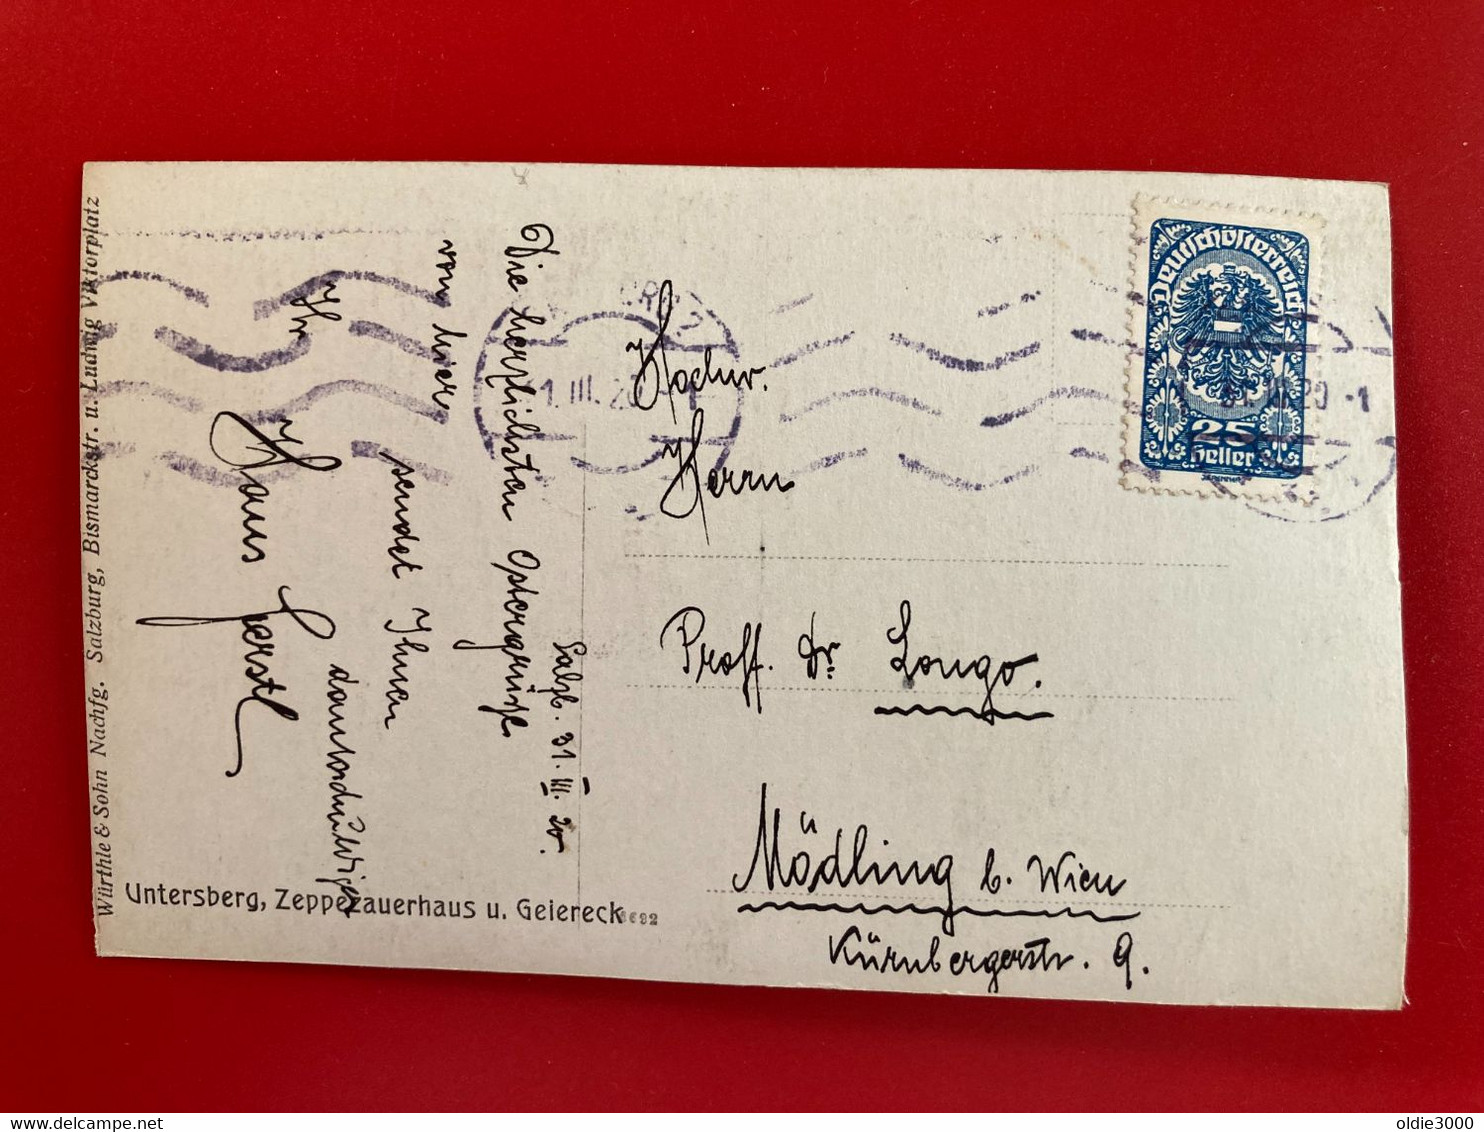 Würthle & Sohn Nachfg. Salzburg, Bismarckstr. u. Ludwig Viktorplatz
Salzb. 31. III. 20.
Die herzlichsten Ostergrüße
sendet Ihnen
von hier
Ihr dankschuldiger
Hans Gerstl
Untersberg, Zeppezauerhaus u. Geiereck
Hochw.
Herrn
Proff. Dr. Longo.
Mödling b. Wien
Kürnbergerstr. 9.
Deutschösterreich
25
Heller
1. III. 20 - 1
31. III. 20 - 1
oldie3000